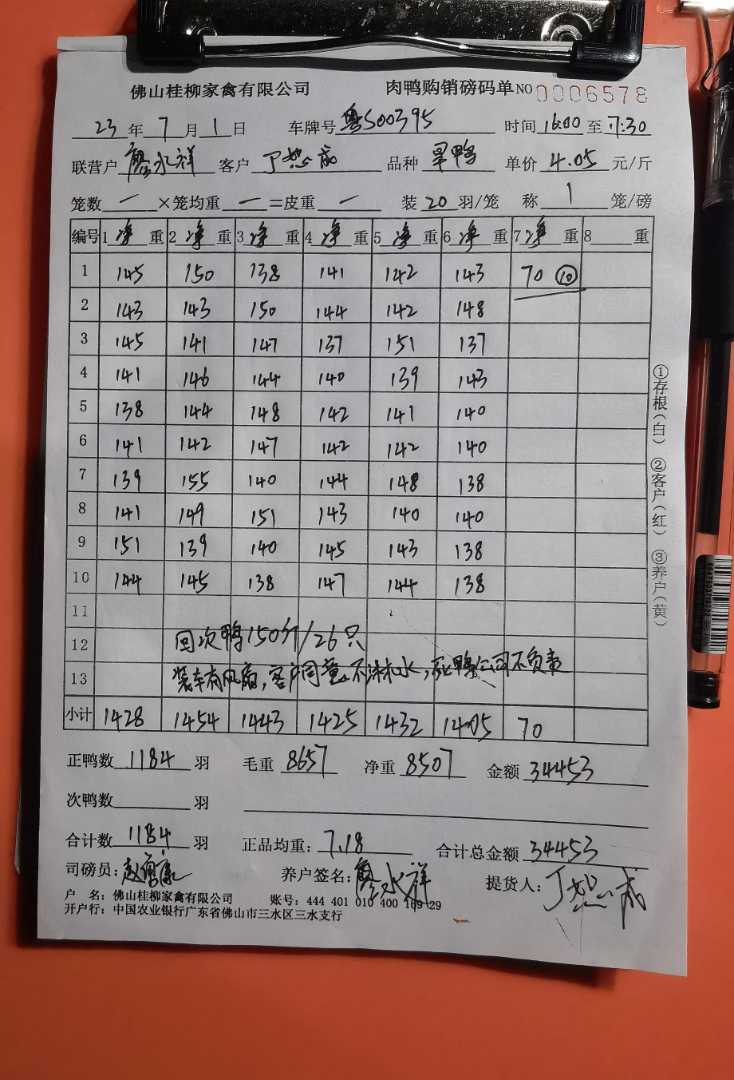 佛山桂柳家禽有限公司 肉鸭购销磅码单 NO 0006578
23 年 7 月 1 日 车牌号 粤S00395 时间 16:00 至 17:30
联营户 廖水祥 客户 丁想成 品种 旱鸭 单价 4.05 元/斤
笼数 一 ×笼均重 一 =皮重 一 装 20 羽/笼 称 1 笼/磅
编号 1 净 重 2 净 重 3 净 重 4 净 重 5 净 重 6 净 重 7 净 重 8 重
1 145 150 138 141 142 143 70 ⑩
2 143 143 150 144 142 148
3 145 141 147 137 151 137
4 141 146 144 140 139 143
5 138 144 148 142 141 140
6 141 142 147 142 142 140
7 139 155 140 144 148 138
8 141 149 151 143 140 140
9 151 139 140 145 143 138
10 144 145 138 147 144 138
11
12 回次鸭150斤/26只
13 装车有风扇,客户同意不淋水,死鸭公司不负责
小计 1428 1454 1443 1425 1432 1405 70
①存根(白) ②客户(红) ③养户(黄)
正鸭数 1184 羽 毛重 8657 净重 8507 金额 34453
次鸭数 羽
合计数 1184 羽 正品均重: 7.18 合计总金额 34453
司磅员: 养户签名: 廖水祥 提货人: 丁想成
户 名: 佛山桂柳家禽有限公司 账号: 444 401 010 400 169 29
开户行: 中国农业银行广东省佛山市三水区三水支行